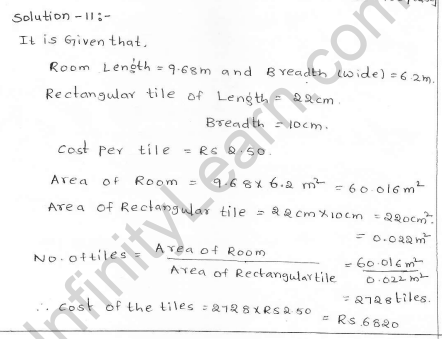 Solution -11:-
It is Given that,
Room Length = 9.68m and Breadth (wide) = 6.2m.
Rectangular tile of Length = 22cm.
Breadth = 10cm.
Cost Per tile = Rs 2.50.
Area of Room = 9.68 x 6.2 m² = 60.016m²
Area of Rectangular tile = 22cm x 10cm = 220cm².
= 0.022m²
No. of tiles = Area of Room / Area of Rectangular tile = 60.016m² / 0.022m²
= 2728 tiles.
∴ Cost of the tiles = 2728 x Rs 2.50
= Rs.6820
InfinityLearn.com